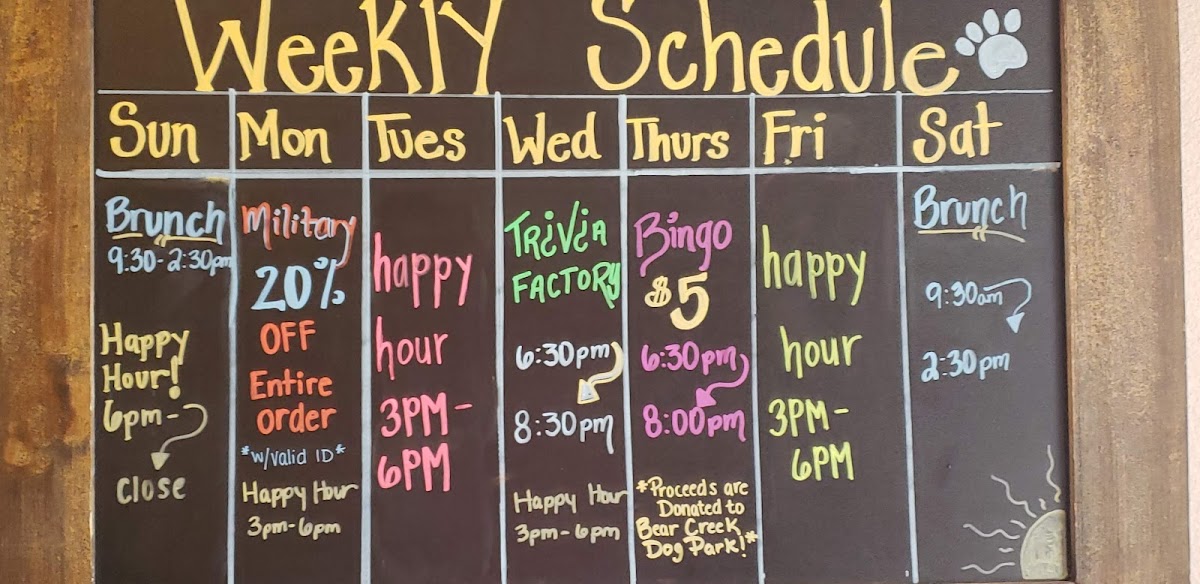 Weekly Schedule
Sun
Mon
Tues
Wed
Thurs
Fri
Sat
Brunch
9:30-2:30pm
Happy
Hour!
6pm-
close
Military
20%
OFF
Entire
order
*w/valid ID*
Happy Hour
3pm-6pm
happy
hour
3PM-
6PM
TRiViA
FACTORY
6:30pm
8:30pm
Happy Hour
3pm-6pm
Bingo
$5
6:30pm
8:00pm
*Proceeds are
Donated to
Bear Creek
Dog Park!*
happy
hour
3PM-
6PM
Brunch
9:30am
2:30pm